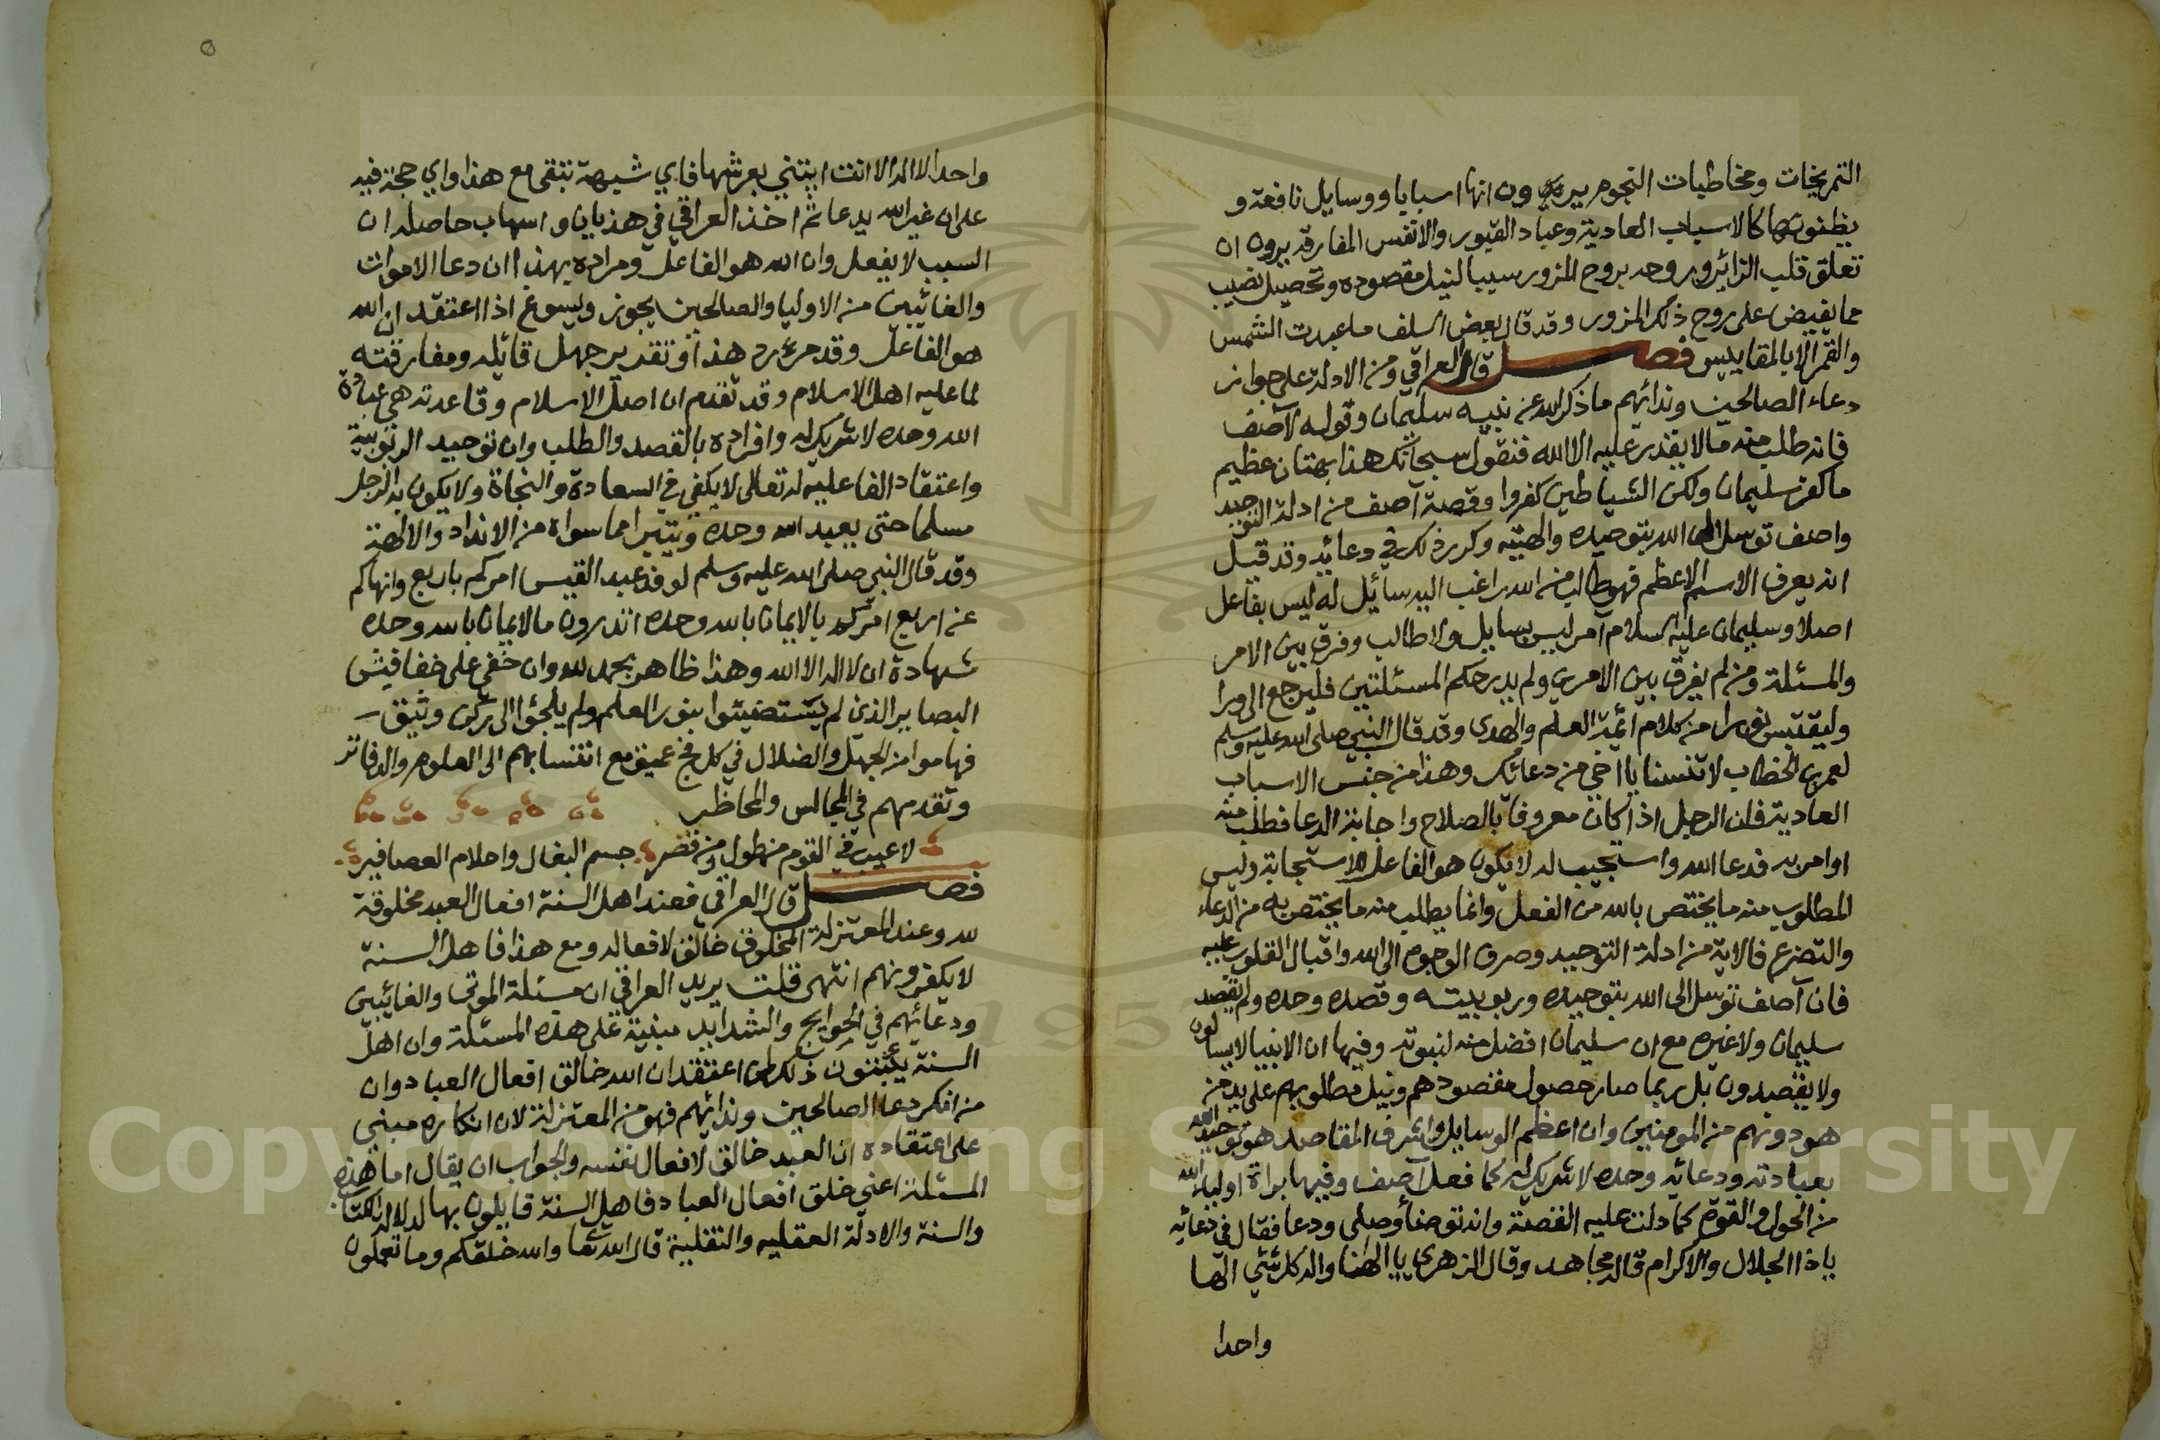 التمريخات ومخاطبات النجوم يريدون انها اسبابا ووسايل نافعة و
يظنونها كالاسباب العادية وعباد القبور والانفس المفارقة يرون ان
تعلق قلب الزائر وروحه بروح المزور سببا لنيل مقصوده وتحصيل نصيب
مما يفيض على روح ذلك المزور وقد قال بعض السلف ما عبدت الشمس
والقمر الا بالمقاييس فصل قال العراقي ومن الادلة على جواز
دعاء الصالحين وندائهم ما ذكر الله عن نبيه سليمان وقوله لآصف
فانه طلب منه ما لا يقدر عليه الا الله فنقول سبحانك هذا بهتان عظيم
ما كفر سليمان ولكن الشياطين كفروا وقصة آصف من ادلة التوحيد
واصف توسل الى الله بتوحيده والهيته وكرر ذلك في دعائه وقد قيل
انه يعرف الاسم الاعظم فهو طالب من الله راغب اليه سائل له ليس بفاعل
اصلا وسليمان عليه السلام آمر ليس بسايل ولا طالب وفرق بين الامر
والمسئلة ومن لم يفرق بين الامرين ولم يدر حكم المسئلتين فليرجع الى ورا
وليقتبس نورا من كلام ائمة العلم والهدى وقد قال النبي صلى الله عليه وسلم
لعمر بن الخطاب لا تنسنا يا اخي من دعائك وهذا من جنس الاسباب
العادية فان الرجل اذا كان معروفا بالصلاح واجابة الدعا فطلب منه
او امر به فدعا الله واستجيب له لا يكون هو الفاعل للاستجابة وليس
المطلوب منه ما يختص بالله من الفعل وانما يطلب منه ما يختص به من الدعاء
والتضرع فالاية من ادلة التوحيد وصرف الوجوه الى الله واقبال القلوب عليه
فان آصف توسل الى الله بتوحيده وربوبيته وقصده وحده ولم يقصد
سليمان ولا غيره مع ان سليمان افضل منه لنبوته وفيها ان الانبيا لا يسالون
ولا يقصدون بل ربما صار حصول مقصودهم ونيل مطلوبهم على يد من
هو دونهم من المومنين وان اعظم الوسايل واشرف المقاصد هو توحيد الله
بعبادته ودعائه وحده لا شريك له كما فعل آصف وفيها براة اولياء الله
من الحول والقوة كما دلت عليه القصة وانه توضأ وصلى ودعا فقال في دعائه
ياذا الجلال والاكرام قاله مجاهد وقال الزهري يا الهنا واله كل شئي الها
واحدا
واحدا لا اله الا انت ايتني بعرشها فاي شبهة تبقى مع هذا واي حجة فيه
على ان غير الله يدعا ثم اخذ العراقي في هذيان واسهاب حاصله ان
السبب لا يفعل وان الله هو الفاعل ومراده بهذا ان دعا الاموات
والغائبين من الاوليا والصالحين يجوز ويسوغ اذا اعتقد ان الله
هو الفاعل وقد مر رد هذا وتقدير جهل قائله ومفارقته
لما عليه اهل الاسلام وقد تقدم ان اصل الاسلام وقاعدته هي عبادة
الله وحده لا شريك له وافراده بالقصد والطلب وان توحيد الربوبية
واعتقاد الفاعلية له تعالى لا يكفي في السعادة والنجاة ولا يكون به الرجل
مسلما حتى يعبد الله وحده ويتبرا مما سواه من الانداد والالهة
وقد قال النبي صلى الله عليه وسلم لوفد عبد القيس امركم باربع وانهاكم
عن اربع امركم بالايمان بالله وحده اتدرون ما الايمان بالله وحده
شهادة ان لا اله الا الله وهذا ظاهر بحمد لله وان خفي على خفافيش
البصاير الذين لم يستضيئوا بنور العلم ولم يلجؤا الى ركن وثيق
فهاموا من الجهل والضلال في كل فج عميق مع انتسابهم الى العلوم والدفاتر
وتقدمهم في المجالس والمحاظر
لا عيب في القوم من طول ومن قصر جسم البغال واحلام العصافير
فصل قال العراقي فعند اهل السنة افعال العبد مخلوقة
لله وعند المعتزلة المخلوق خالق لافعاله ومع هذا فاهل السنة
لا يكفرونهم انتهى قلت يريد العراقي ان مسئلة الموتى والغائبين
ودعائهم في الحوايج والشدايد مبنية على هذه المسئلة وان اهل
السنة يثبتون ذلك لمن اعتقد ان الله خالق افعال العباد وان
من انكر دعا الصالحين وندائهم فهو من المعتزلة لان انكاره مبني
على اعتقاده ان العبد خالق لافعال نفسه والجواب ان يقال اما هذه
المسئلة اعني خلق افعال العباد فاهل السنة قايلون بها لدلالة الكتاب
والسنة والادلة العقليه والنقلية قال الله تعا والله خلقكم وما تعملون
Copyright © King Saud University